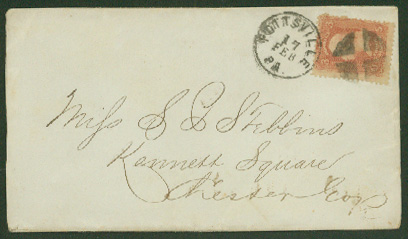 POTTSVILLE
17
FEB
PA.
Miss S C Stebbins
Kennett Square
Chester Co